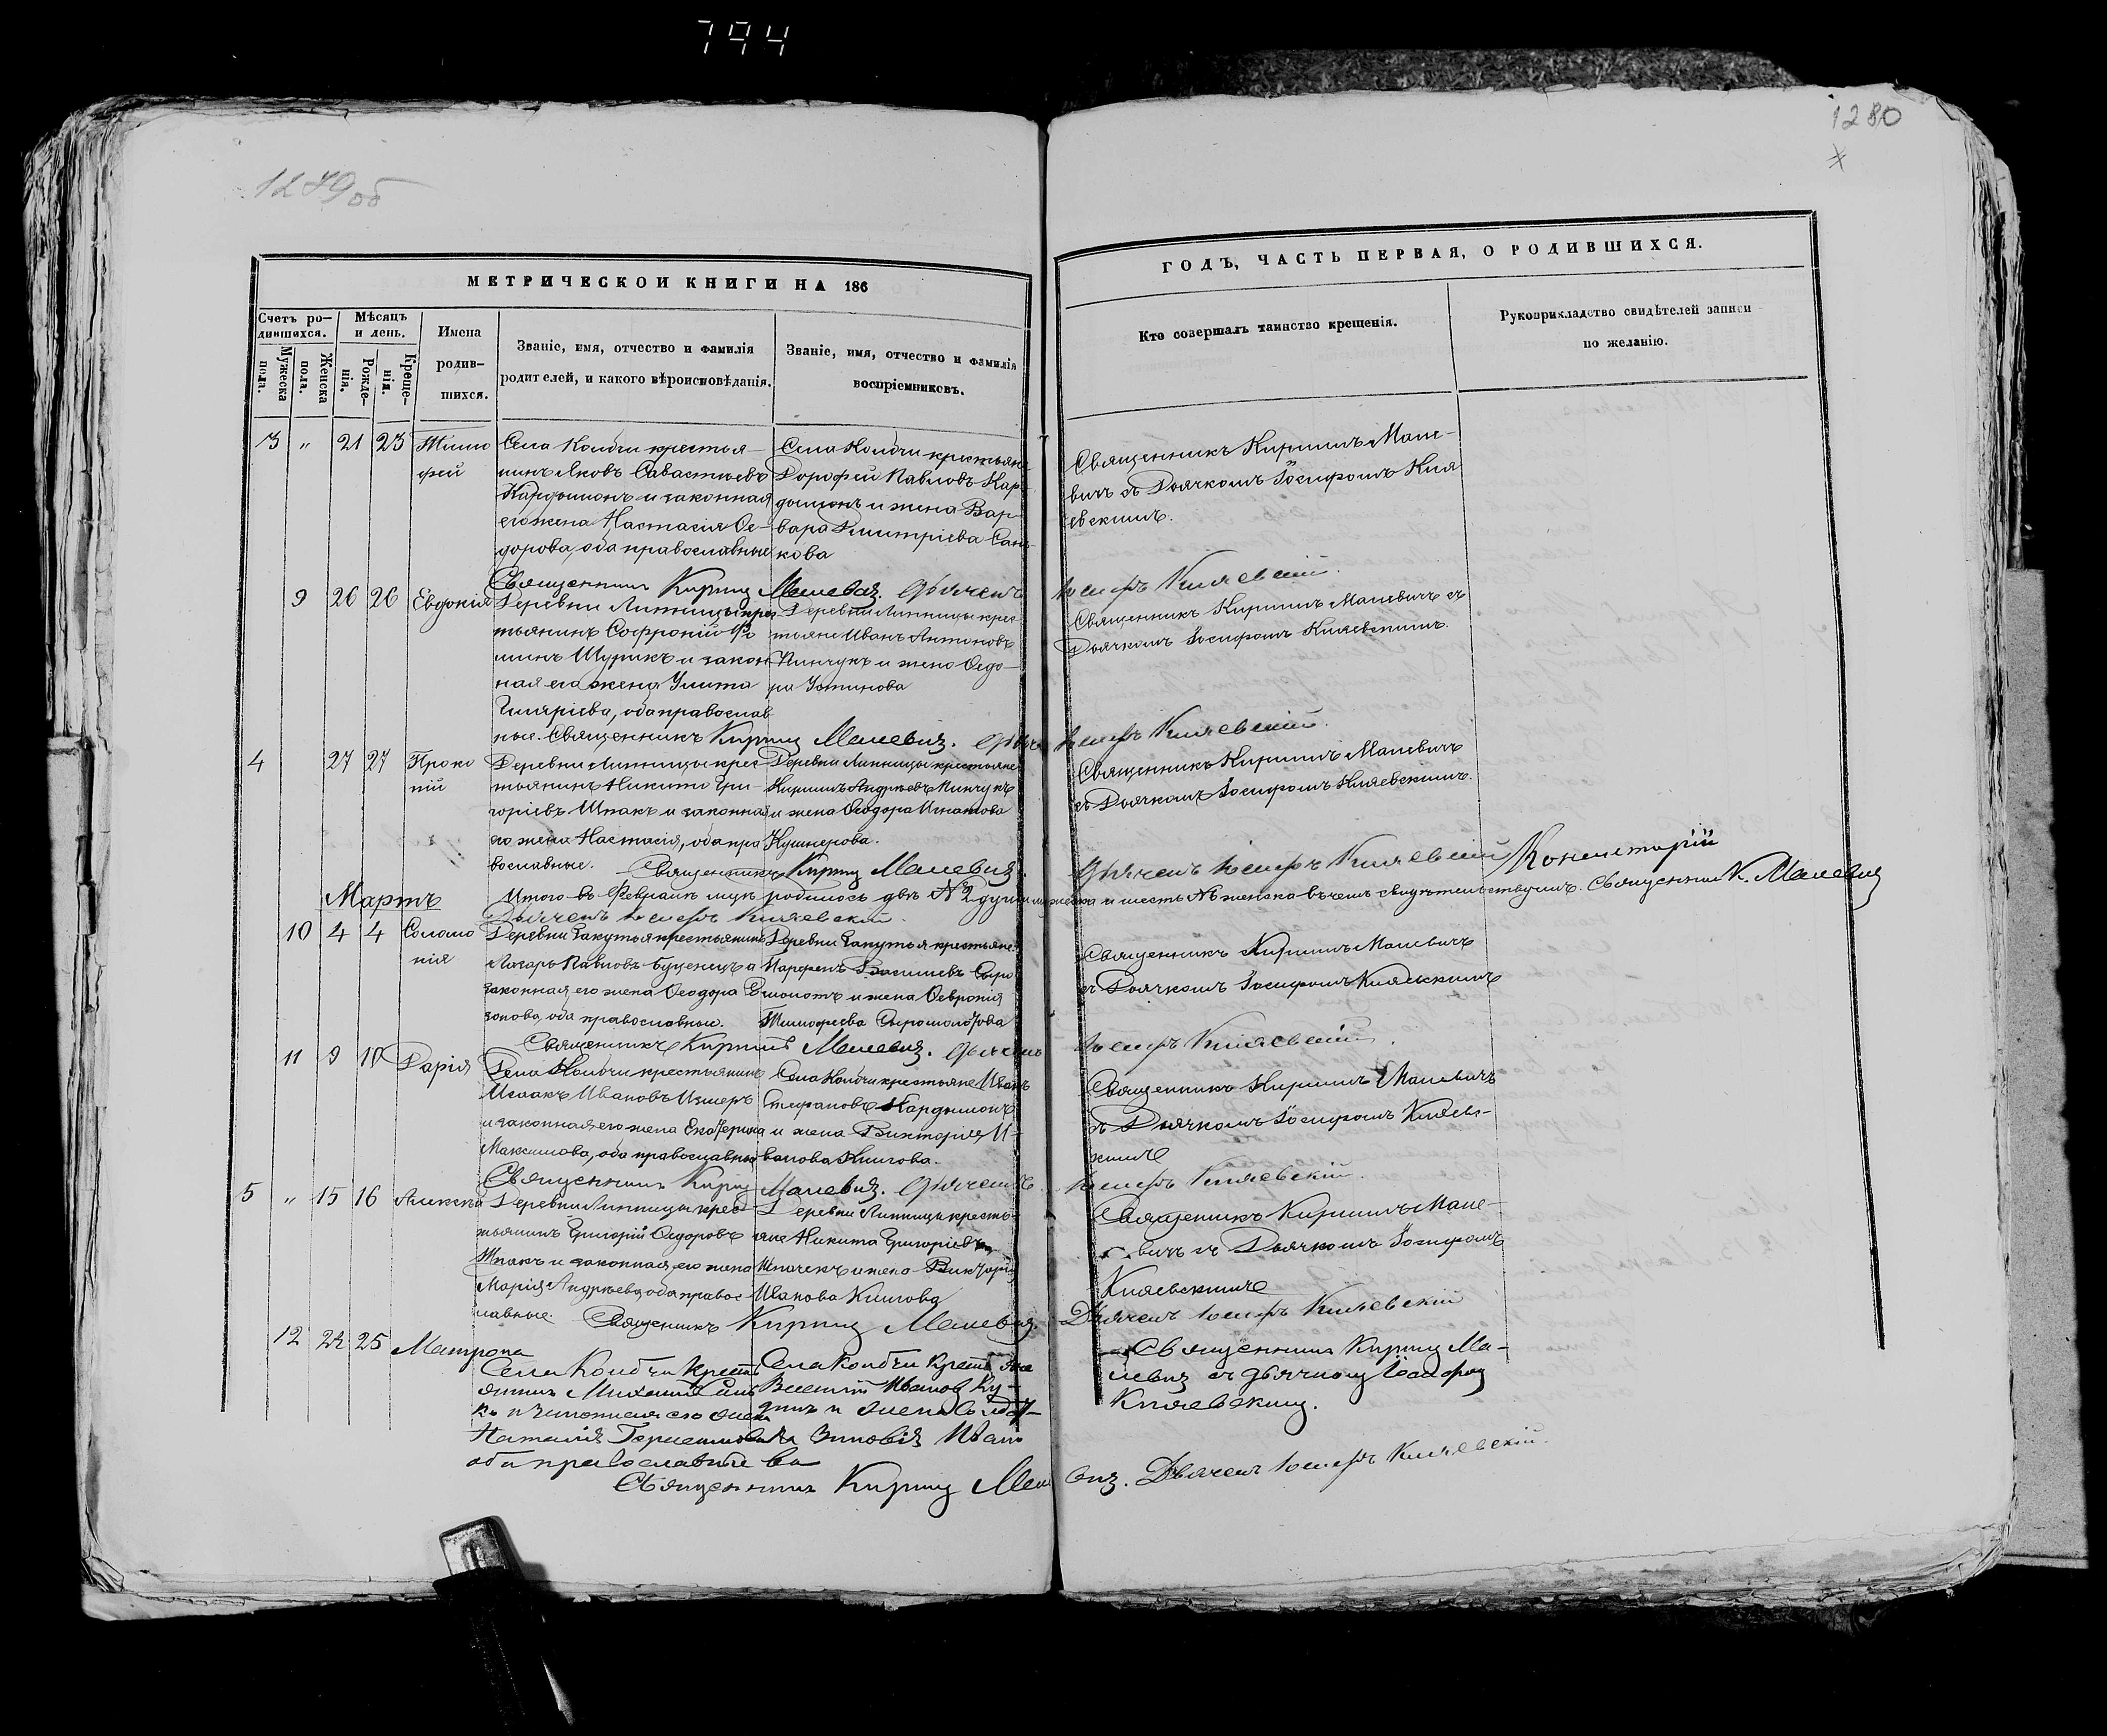 794
1280
1279об
МЕТРИЧЕСКОИ КНИГИ НА 186
ГОДЪ, ЧАСТЬ ПЕРВАЯ, О РОДИВШИХСЯ.
Счетъ ро-
дившихся.
Мужеска
пола.
Женска
пола.
Мѣсяцъ
и день.
Рожде-
нія.
Креще-
нія.
Имена
родив-
шихся.
Званіе, имя, отчество и фамилія
родителей, и какого вѣроисповѣданія.
Званіе, имя, отчество и фамилія
воспріемниковъ.
Кто совершалъ таинство крещенія.
Рукоприкладство свидѣтелей записи
по желанію.
3 " 21 23 Тимо
фей
Села Колбчи крестья-
нинъ Яковъ Савастьевъ
Кардымонъ и законная
его жена Настасія Ѳе-
дорова, оба православные
Села Колбчи крестьяне
Дорофей Павловъ Кар-
дымонъ и жена Вар-
вара Дмитріева
кова
Священникъ Кириллъ Мале-
вичъ съ Дьячкомъ Іосифомъ Кия
евскимъ.
Священникъ Кириллъ Малевич. Дьячекъ Іосифъ Кияевскій.
9 26 26 Евдокія
Деревни Липницы крес
тьянинъ Софроній
минъ Шурикъ и закон
ная его жена Улита
Гиляріева, оба православ
ные.
Деревни Липницы крес-
тьяне Иванъ Антоновъ
Пинчукъ и жена Ѳедо-
ра Устинова
Священникъ Кириллъ Малевичъ съ
Дьячкомъ Іосифомъ Кияевскимъ.
Священникъ Кириллъ Малевич. Іосифъ Кияевскій.
4 27 27 Проко
пій
Деревни Липницы крес-
тьянинъ Никита Гри-
горіевъ Шпакъ и законная
его жена Настасія, оба пра
вославные.
Деревни Липницы крестьяне
Кириллъ Андреевъ Пинчукъ
и жена Ѳеодора Игнатова
Кушнерова.
Священникъ Кириллъ Малевичъ
съ Дьячкомъ Іосифомъ Кияевскимъ.
Священникъ Кириллъ Малевич. Дьячекъ Іосифъ Кияевскій
Мартъ
Итого въ Февралѣ родилось двѣ № 2 души мужска и шесть женска въ чемъ свидѣтельствуемъ. Священникъ К. Малевич
Дьячекъ Іосифъ Кияевскій.
10 4 4 Соломо
нія
Деревни Закутья крестьянинъ
Лазарь Павловъ
законная его жена Ѳеодора
оба православные.
Деревни Закутья крестьяне
Парфенъ Василіевъ Сыро
молотъ и жена Ѳевронія
Тимофеева Сыромолотова
Священникъ Кириллъ Малевичъ
съ Дьячкомъ Іосифомъ Кияевскимъ
Священникъ Кириллъ Малевич. Дьячекъ Іосифъ Кияевскій.
11 9 10 Дарія
Села Колбчи крестьянинъ
Исаакъ Ивановъ
и законная его жена Екатерина
Максимова, оба православные
Села Колбчи крестьяне Иванъ
Стефановъ Кардымонъ
и жена Викторія И-
ванова Климова.
Священникъ Кириллъ Малевичъ
съ Дьячкомъ Іосифомъ Кияевс-
кимъ
Священникъ Кириллъ Малевич. Дьячекъ Іосифъ Кияевскій.
5 " 15 16 Алексѣй
Деревни Липницы крес-
тьянинъ Григорій Ѳедоровъ
Шпакъ и законная его жена
Марія Андреева, оба правос-
лавные.
Деревни Липницы кресть-
яне Никита Григоріевъ
и жена Викторія
Иванова Климова
Священникъ Кириллъ Мале-
вичъ съ Дьячкомъ Іосифомъ
Кияевскимъ
Священникъ Кириллъ Малевич. Дьячекъ Іосифъ Кияевскій
12 24 25 Матрона
Села Колбчи крестьянинъ Михаилъ
и законная его жена
Наталія
оба православные
Села Колбчи крестьяне
Василій Иванов
и жена
Зиновія Ивано
ва
Священникъ Кириллъ Ма-
левич съ дьячкомъ Іосифом
Кияевским.
Священникъ Кириллъ Малевич. Дьячекъ Іосифъ Кияевскій.